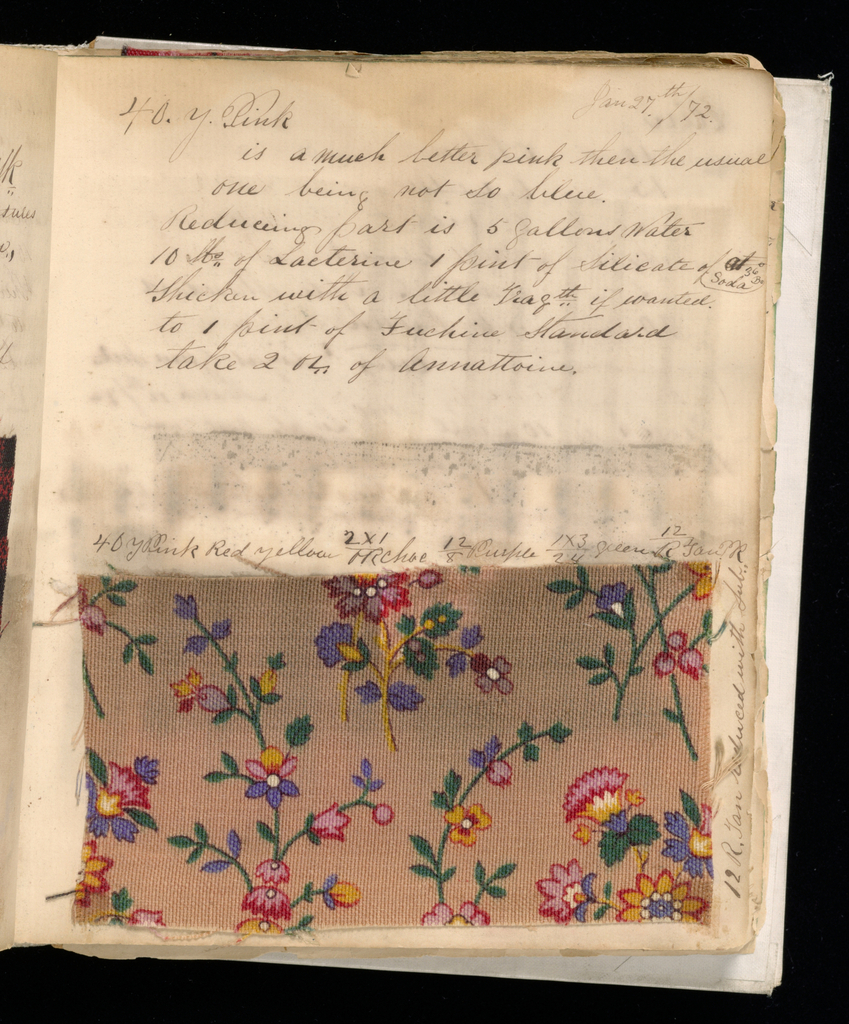 Jan 27th/72.
40. Y. Pink
is a much better pink then the usual
one being not so blue.
Reducing part is 5 gallons Water
10 lbs of Lacterine 1 pint of Silicate of Soda at 36° Be
Thicken with a little Tragth if wanted.
to 1 pint of Fuchine Standard
take 2 ozs of Annattoine.
40 Y Pink Red yellow 2X1 choc 12/8 Purple 1X3/24 green 12 R Tan
12 R. Tan reduced with